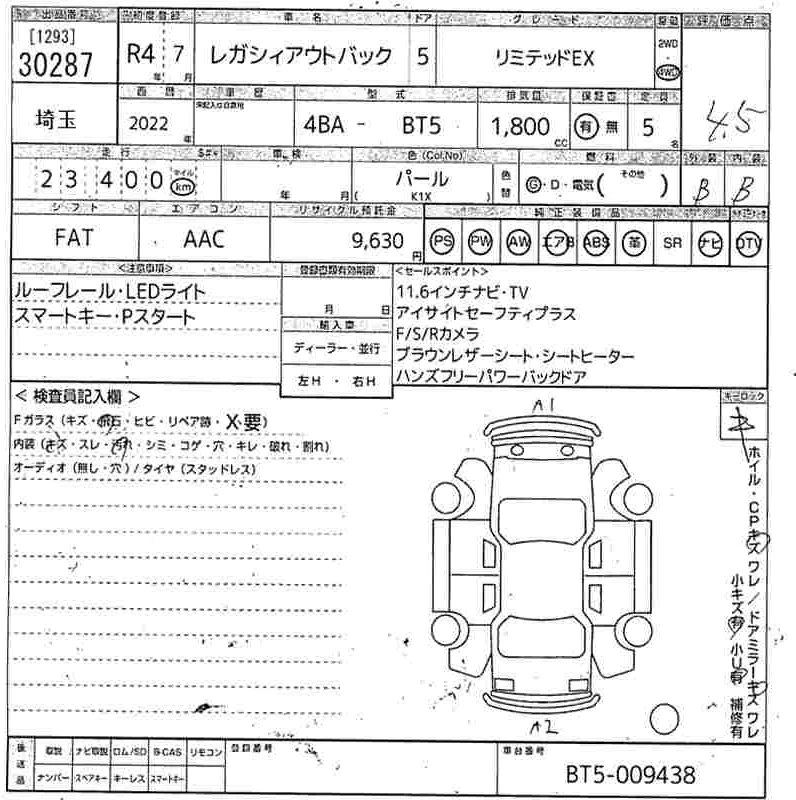 出品番号 初度登録 車名 ドア グレード 駆動 評価点
[1293]
30287 R4 年 7 月 レガシィアウトバック 5 リミテッドEX 2WD ・ 4WD 4.5
西暦 車歴 型式 排気量 保証書 定員
埼玉 2022 年 4BA - BT5 1,800 cc 有 無 5 名
走行 車検 色(Col.No) 燃料 外装 内装
2 3 4 0 0 マイル km 年 月 パール ( K1X ) 色替 G・D・電気( その他 ) B B
シフト エアコン リサイクル預託金 純正装備品
FAT AAC 9,630 円 PS PW AW エアB ABS 革 SR ナビ TV
<注意事項> 登録書類有効期限 <セールスポイント>
ルーフレール・LEDライト 月 日 11.6インチナビ・TV
スマートキー・Pスタート 輸入車 アイサイトセーフティプラス
ディーラー・並行 F/S/Rカメラ
左H ・ 右H ブラウンレザーシート・シートヒーター
ハンズフリーパワーバックドア
< 検査員記入欄 > A1 キーロック
Fガラス(キズ・飛石・ヒビ・リペア跡・X・要)
内装(キズ・スレ・汚れ・シミ・コゲ・穴・キレ・破れ・割れ)
オーディオ(無し・穴)/タイヤ(スタッドレス)
ホイル・CPキズ ワレ/ドアミラーキズ ワレ
小キズ有/小U有 補修有
A2
後送品 取説 ナビ取説 ロム/SD B-CAS リモコン 登録番号 車台番号
ナンバー スペアキー キーレス スマートキー BT5-009438